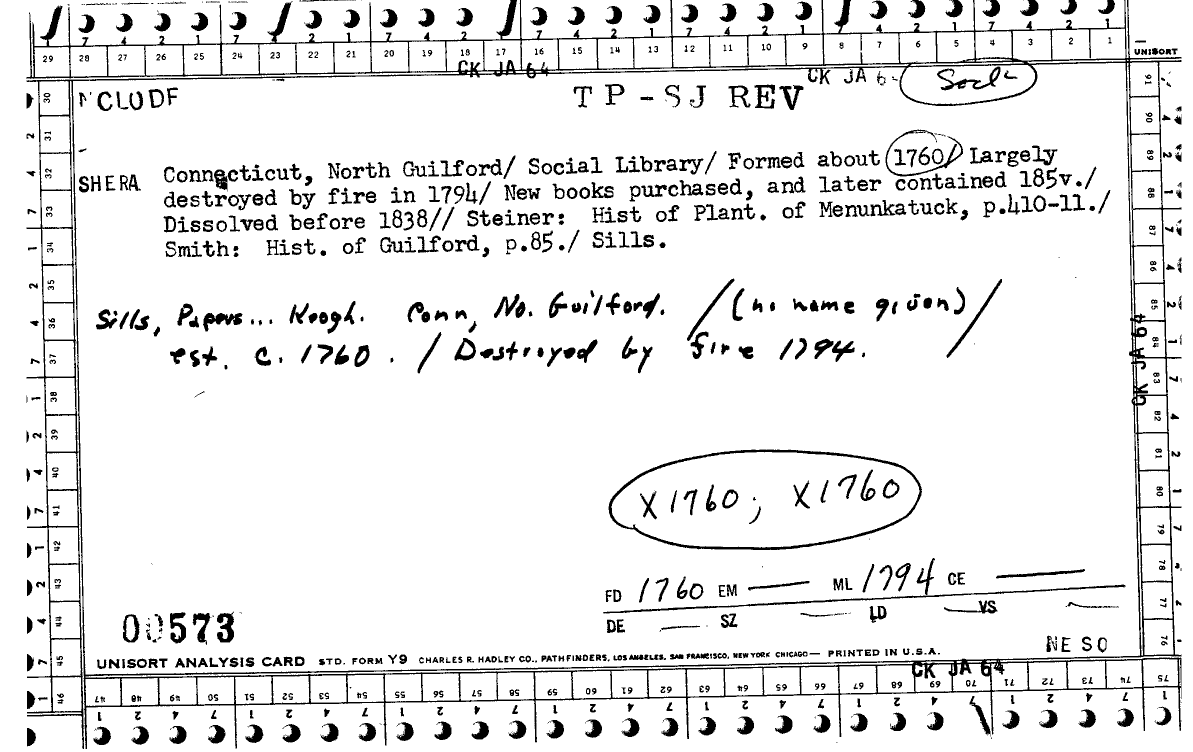 7 4 2 1 7 4 2 1 7 4 2 1 7 4 2 1 7 4 2 1
29 28 27 26 25 24 23 22 21 20 19 18 17 16 15 14 13 12 11 10 9 8 7 6 5 4 3 2 1 UNISORT
CK JA 64 CK JA 6
NCLODF TP-SJ REV
SHERA Connecticut, North Guilford/ Social Library/ Formed about 1760/ Largely
destroyed by fire in 1794/ New books purchased, and later contained 185v./
Dissolved before 1838// Steiner: Hist of Plant. of Menunkatuck, p.410-11./
Smith: Hist. of Guilford, p.85./ Sills.
Sills, Papers... Keogh. Conn, No. Guilford. /(no name given)/
est. c. 1760. / Destroyed by fire 1794.
CK JA 64
X1760; X1760
FD 1760 EM — ML 1794 CE —
DE — SZ — LD — VS —
00573
NESO
UNISORT ANALYSIS CARD STD. FORM Y9 CHARLES R. HADLEY CO., PATHFINDERS, LOS ANGELES, SAN FRANCISCO, NEW YORK CHICAGO— PRINTED IN U.S.A.
CK JA 64
47 48 49 50 51 52 53 54 55 56 57 58 59 60 61 62 63 64 65 66 67 68 69 70 71 72 73 74 75
30 31 32 33 34 35 36 37 38 39 40 41 42 43 44 45 46
91 90 89 88 87 86 85 84 83 82 81 80 79 78 77 76